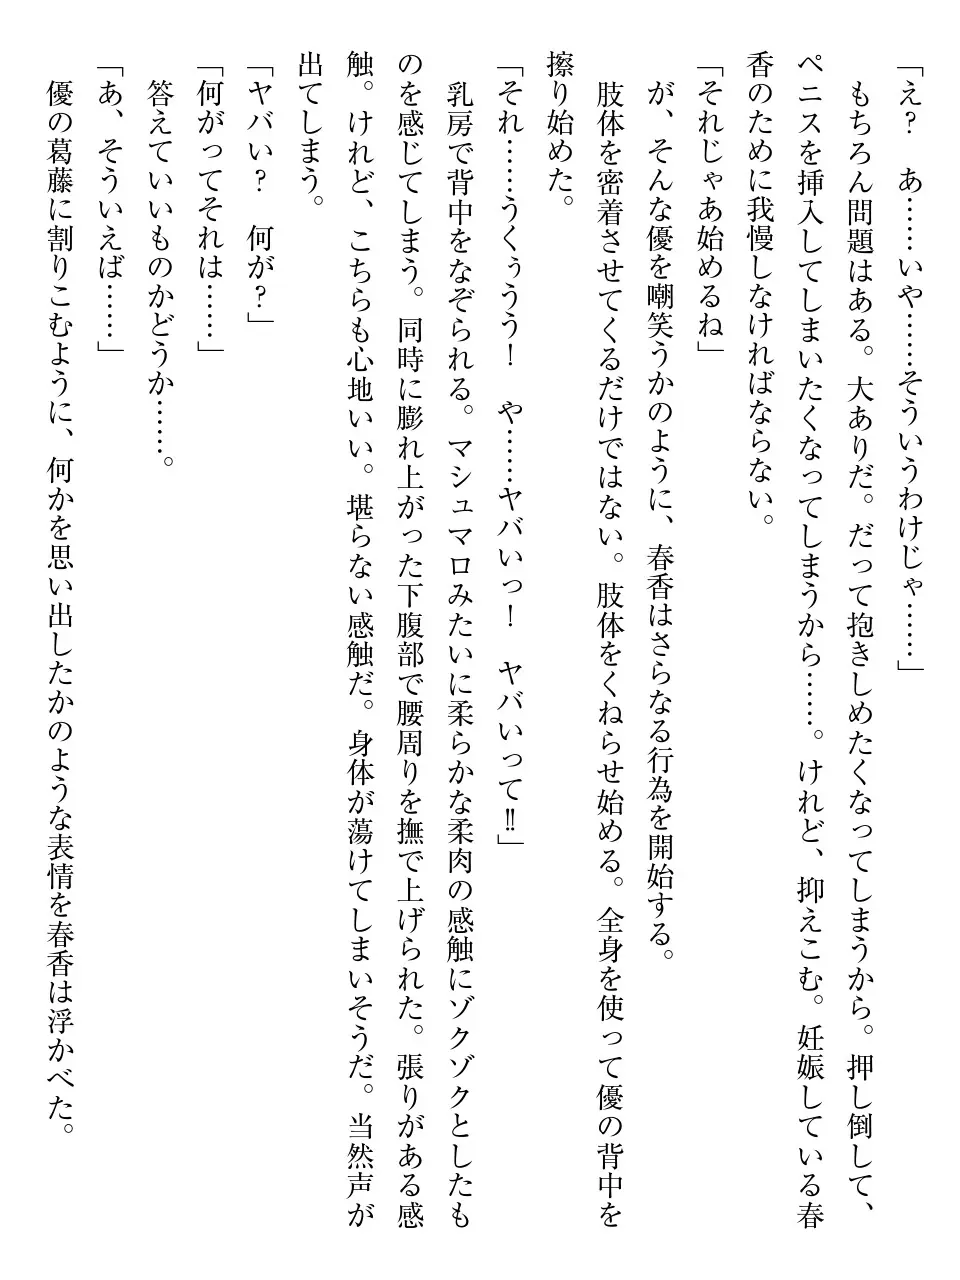 「え？　あ……いや……そういうわけじゃ……」
　もちろん問題はある。大ありだ。だって抱きしめたくなってしまうから。押し倒して、
ペニスを挿入してしまいたくなってしまうから……。けれど、抑えこむ。妊娠している春
香のために我慢しなければならない。
「それじゃあ始めるね」
　が、そんな優を嘲笑うかのように、春香はさらなる行為を開始する。
　肢体を密着させてくるだけではない。肢体をくねらせ始める。全身を使って優の背中を
擦り始めた。
「それ……うくぅうう！　や……ヤバいっ！　ヤバいって‼」
　乳房で背中をなぞられる。マシュマロみたいに柔らかな柔肉の感触にゾクゾクとしたも
のを感じてしまう。同時に膨れ上がった下腹部で腰周りを撫で上げられた。張りがある感
触。けれど、こちらも心地いい。堪らない感触だ。身体が蕩けてしまいそうだ。当然声が
出てしまう。
「ヤバい？　何が？」
「何がってそれは……」
　答えていいものかどうか……。
「あ、そういえば……」
　優の葛藤に割りこむように、何かを思い出したかのような表情を春香は浮かべた。